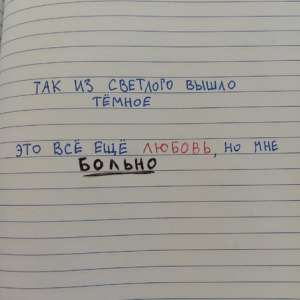 ТАК ИЗ СВЕТЛОГО ВЫШЛО
ТЁМНОЕ
ЭТО ВСЁ ЕЩЁ ЛЮБОВЬ, НО МНЕ
БОЛЬНО